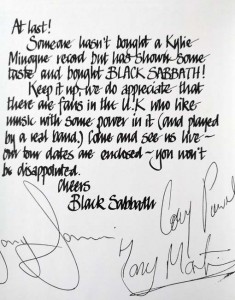 At last!
Someone hasn't bought a Kylie
Minogue record but has shown some
taste and bought BLACK SABBATH!
Keep it up, we do appreciate that
there are fans in the U.K who like
music with some power in it (and played
by a real band.) Come and see us live -
our tour dates are enclosed - you won't
be disappointed.
Cheers
Black Sabbath
Tony Martin